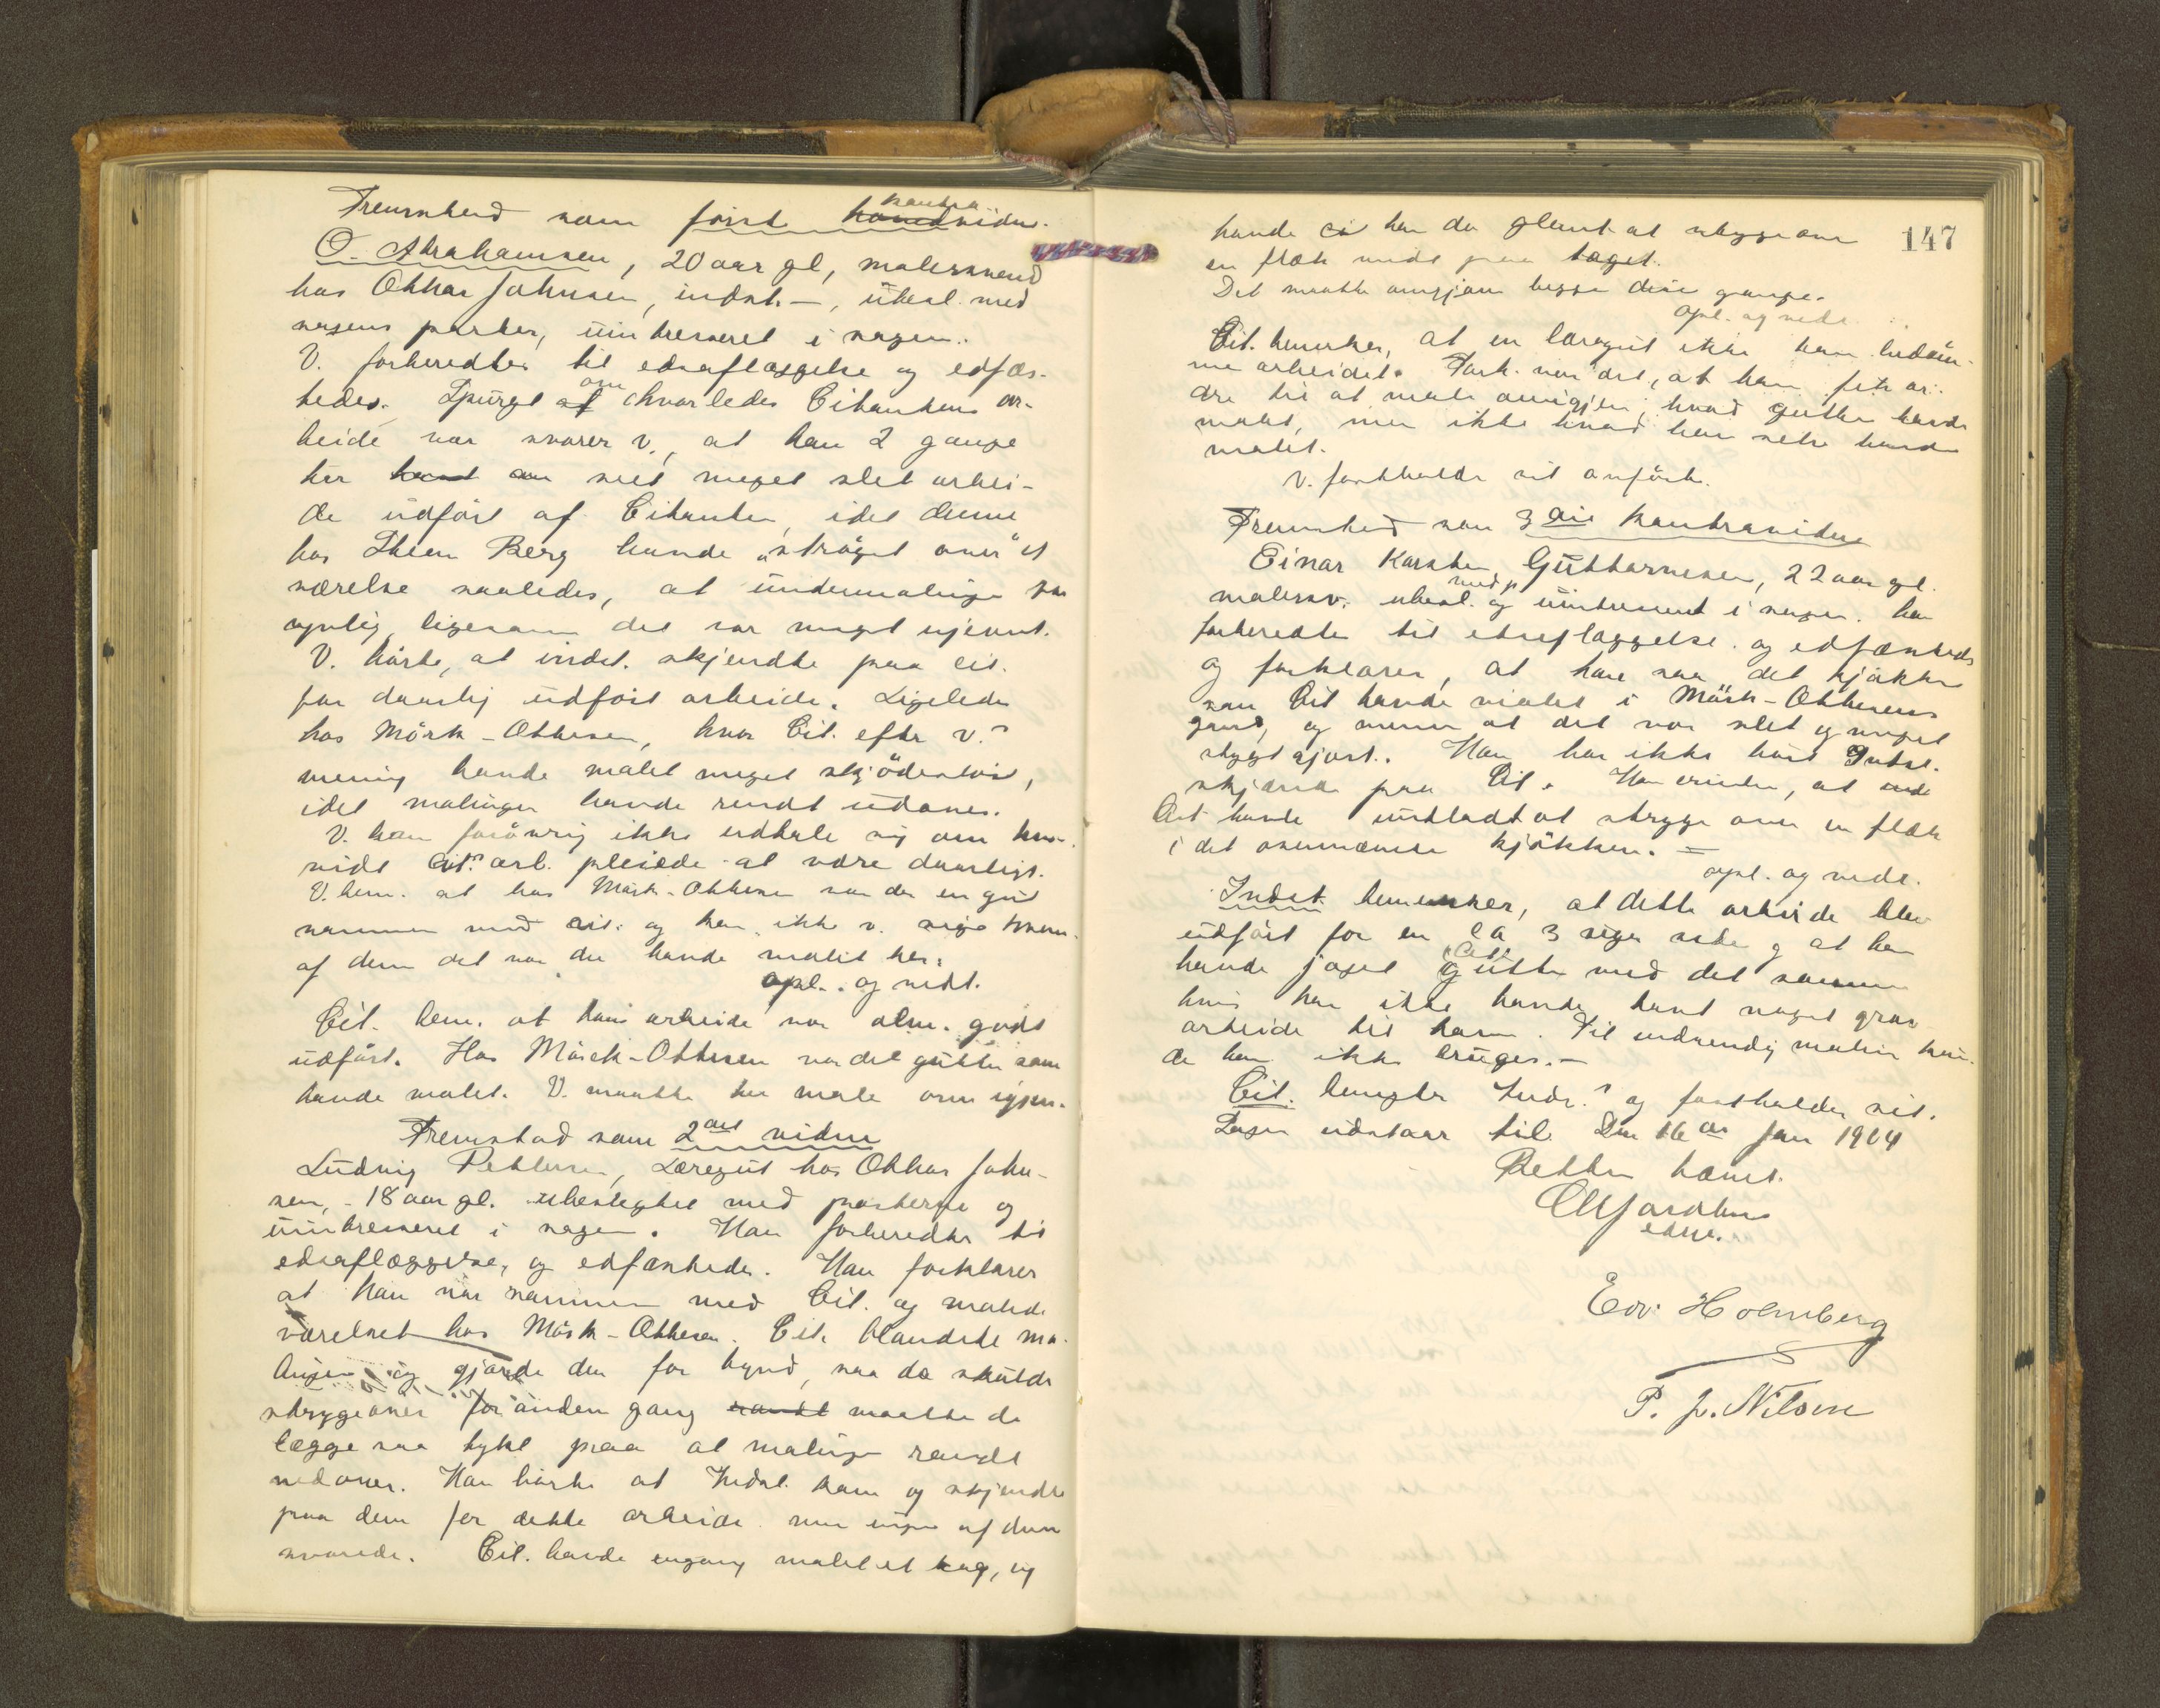 Fremstod som først kontra
hovedvidne.
O. Abrahamsen, 20 aar gl, malersvend
hos Othar Johnsen, indst. —, ubesl. med
sagens parter, uintresseret i sagen.
V. forberedtes til edsaflæggelse og edfæs-
tedes. Spurgt af om hvorledes Citantens ar-
beide var svarer v., at han 2 gange
har seet meget slet arbei-
de udført af Citanten, idet denne
hos Berg havde "strøget over" et
værelse saaledes, at undermalingen var
synlig, ligesom det var meget ujevnt.
V. hørte, at indst. skjendte paa cit.
for daarlig udført arbeide. Ligeledes
hos Mörk-Ottesen, hvor Cit. efter v.s
mening havde malet meget skjødesløst,
idet malingen havde rendt udover.
V. kan forøvrig ikke udtale sig om hvor-
vidt Cit.s arb. pleiede at være daarligt.
V. bem. at hos Mörk-Ottesen var der en gut
sammen med cit. og kan ikke v. sige hvem
af dem det var der havde malet her.
opl. og vedt.
Cit. bem. at hans arbeide var alm. godt
udført. Hos Mörck-Ottesen var det gutten som
havde malet. V. maatte her male om igjen.
Fremstod som 2det vidne
Ludvig Pettersen, Læregut hos Othar John-
sen, - 18 aar gl. ubeslegtet med parterne og
uintresseret i sagen. Han forberedtes til
edsaflæggelse, og edfæstedes. Han forklarer
at han var sammen med Cit. og malede
værelset hos Mörk-Ottesen. Cit. blandede ma-
lingen og gjorde den for tynd, saa da skulde
stryge over for anden gang randt maatte de
lægge saa tykt paa at malingen randt
nedover. Han hørte at Indst. kom og skjendte
paa dem for dette arbeide men ingen af dem
svarede. Cit. havde engang malet et tag, og
147
havde cit han da glemt at stryge over
en flæk midt paa taget.
Det maatte omgjøres begge disse gange.
opl. og vedt.
Cit. bemerker, at en læregut ikke kan bedøm-
me arbeidet. Fork. var det, at han fik or-
dre til at male omigjen, hvad gutten havde
malet, men ikke hvad han selv havde
malet.
V. fastholder sit anførte.
Fremstod som 3die kontravidne
Einar Karsten Guttormsen, 22 aar gl.
malersv. ubesl. med p. og uintresseret i sagen. Han
forberedtes til edsaflæggelse og edfæstedes
og forklarer, at han saa det kjøkken
som Cit havde malet i Mörk-Ottesens
gaard, og mener at det var slet og meget
stygt gjort. Han har ikke hørt Indst.
skjende paa Cit. Han erindrer, at
Cit havde undladt at stryge over en flæk
i det ovennævnte kjøkken. =
opl. og vedt.
Indst. bemerker, at dette arbeide blev
udført for en ca 3 uger siden og at han
havde jaget Cit. gutten med det samme
hvis han ikke havde havt noget grov
arbeide til ham. Til indvendig maling kun-
de han ikke bruges. —
Cit. benegter Indst.s og fastholder sit.
Sagen udstaar til Den 16de Jan 1904
Retten hævet.

Edv. Holmberg
P. J. Nilsen